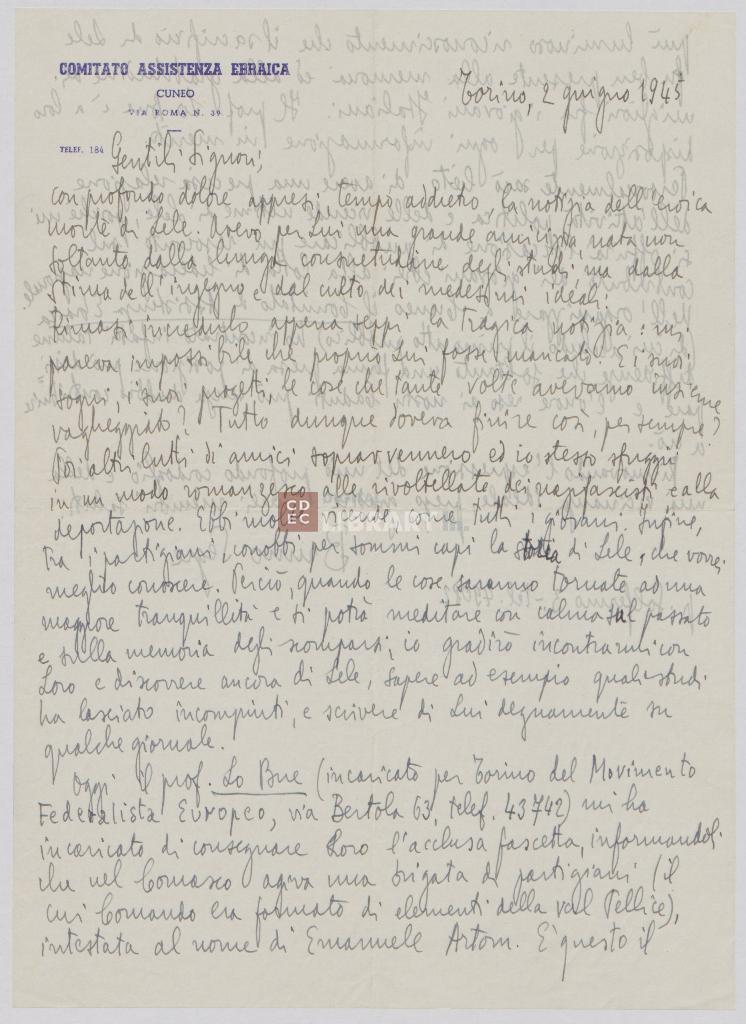 COMITATO ASSISTENZA EBRAICA
CUNEO
VIA ROMA N. 39
TELEF. 184
Torino, 2 giugno 1945
Gentili Signori,
con profondo dolore appresi, tempo addietro, la notizia dell'eroica
morte di Lele. Avevo per Lui una grande amicizia nata non
soltanto dalla lunga consuetudine degli studi, ma dalla
stima dell'ingegno e dal culto dei medesimi ideali.
Rimasi incredulo appena seppi la tragica notizia: mi
pareva impossibile che proprio Lui fosse mancato. E i suoi
sogni, i suoi progetti, le cose che tante volte avevamo insieme
vagheggiato? Tutto dunque doveva finire così, per sempre?
Poi altri lutti di amici sopravvennero ed io stesso sfuggii
in un modo romanzesco alle rivoltellate dei nazifascisti e alla
deportazione. Ebbi molte vicende, come tutti i giovani. Infine,
tra i partigiani, conobbi per sommi capi la storia di Lele, che vorrei
meglio conoscere. Perciò, quando le cose saranno tornate ad una
maggiore tranquillità e si potrà meditare con calma sul passato
e sulla memoria degli scomparsi, io gradirò incontrarmi con
Loro e discorrere ancora di Lele, sapere ad esempio quali studi
ha lasciato incompiuti, e scrivere di Lui degnamente su
qualche giornale.
Oggi il prof. Lo Bue (incaricato per Torino del Movimento
Federalista Europeo, via Bertola 63, telef. 43742) mi ha
incaricato di consegnare Loro l'acclusa fascetta, informandoli
che nel Comasco agiva una brigata di partigiani (il
cui Comando era formato di elementi della val Pellice),
intestata al nome di Emanuele Artom. E' questo il
CDEC